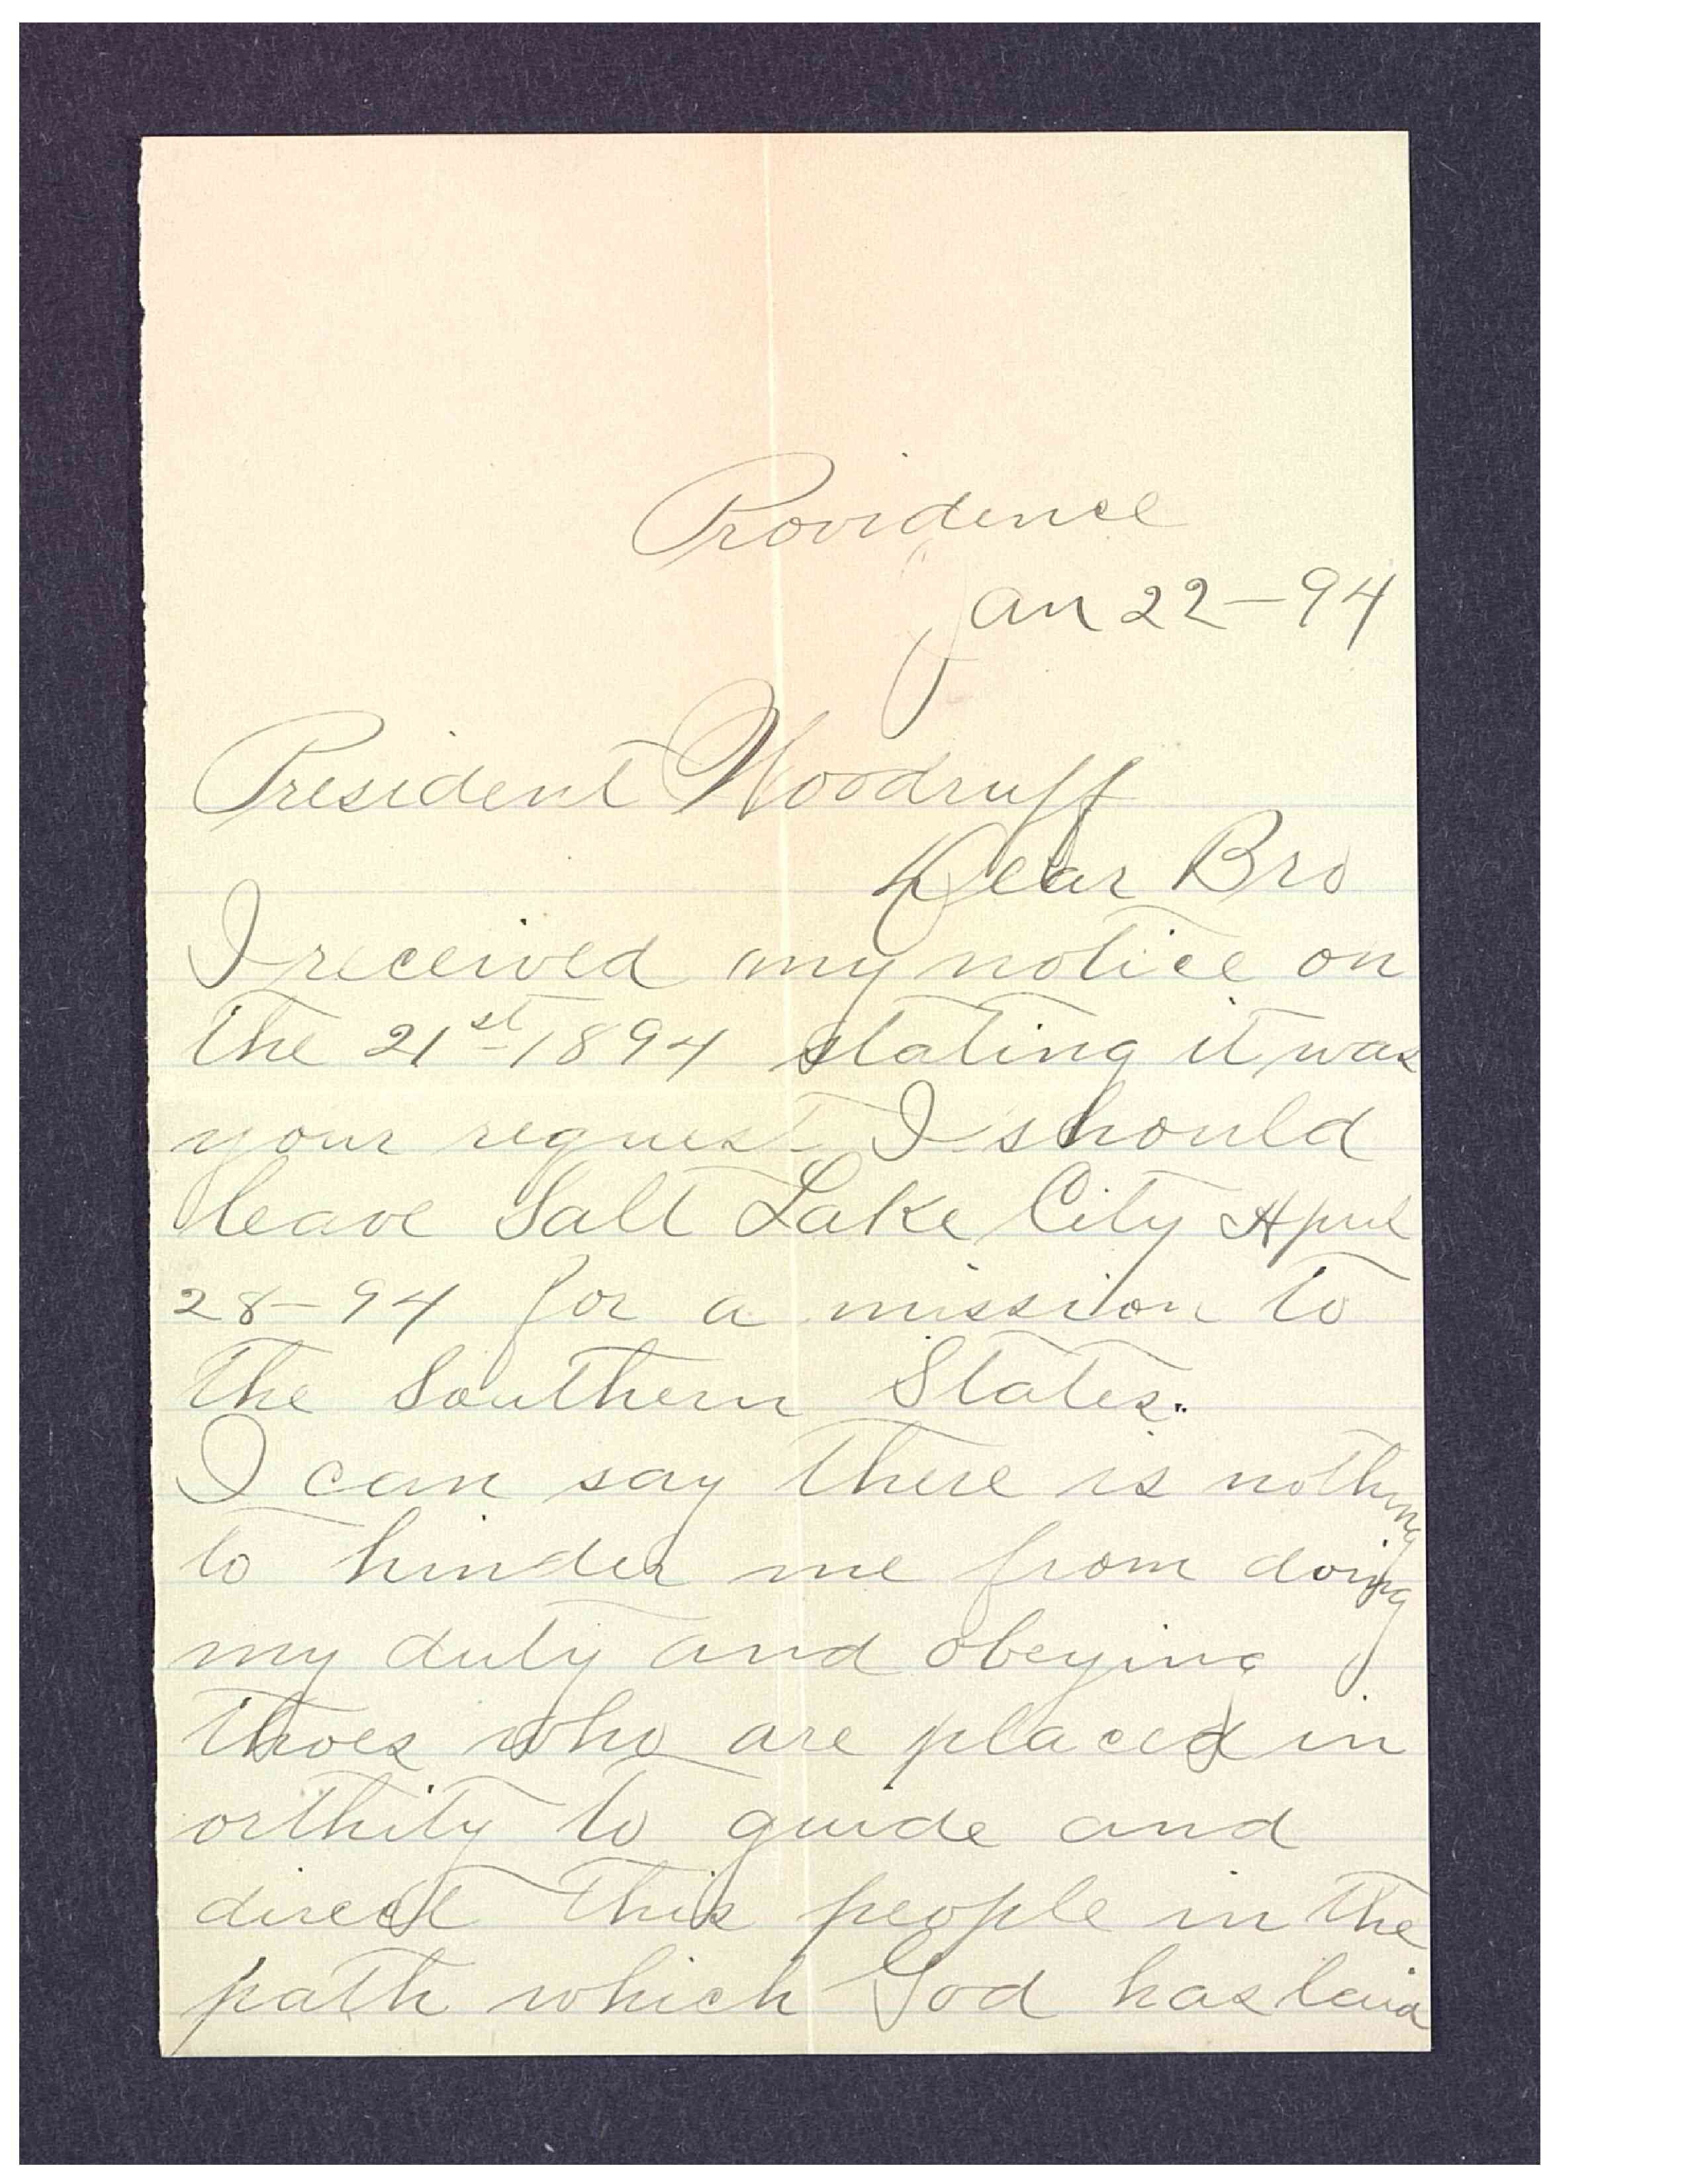 Providence
Jan 22-94
President Woodruff
Dear Bro
I received my notice on
the 21st 1894 stating it was
your request I should
leave Salt Lake City April
28-94 for a mission to
the Southern States.
I can say there is nothing
to hinder me from doing
my duty and obeying
thoes who are placed in
orthity to guide and
direct this people in the
path which God has laid